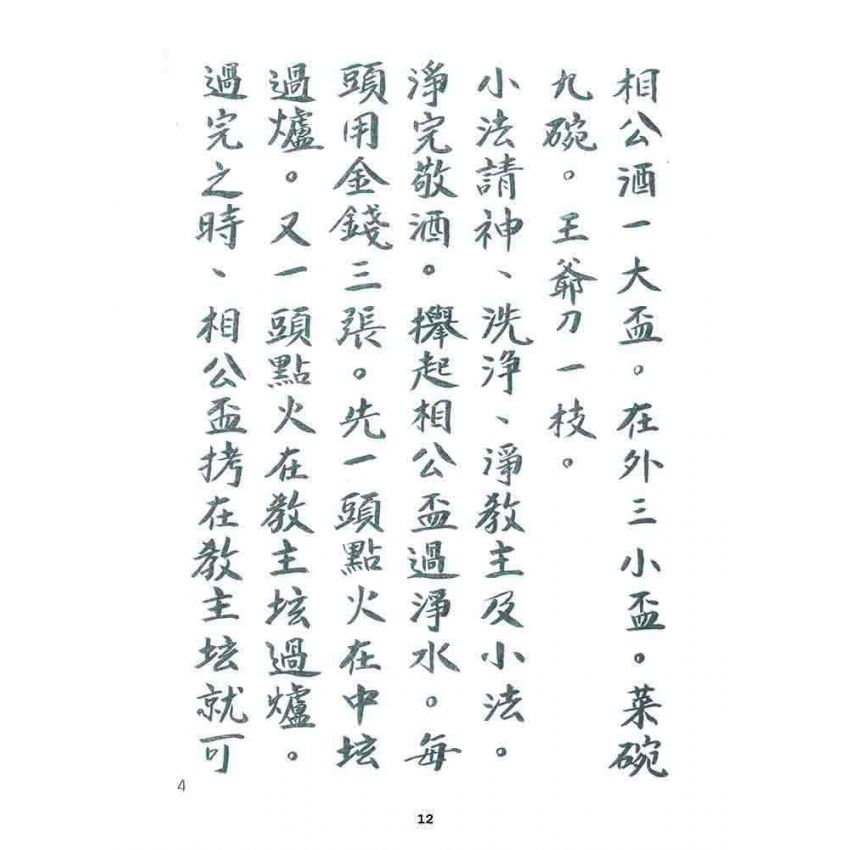 相公酒一大盃。在外三小盃。菜碗
九碗。王爺刀一枝。
小法請神、洗浄、淨教主及小法。
淨完敬酒。攑起相公盃過淨水。每
頭用金錢三張。先一頭點火在中坛
過爐。又一頭點火在教主坛過爐。
過完之時、相公盃拷在教主坛就可
4
12